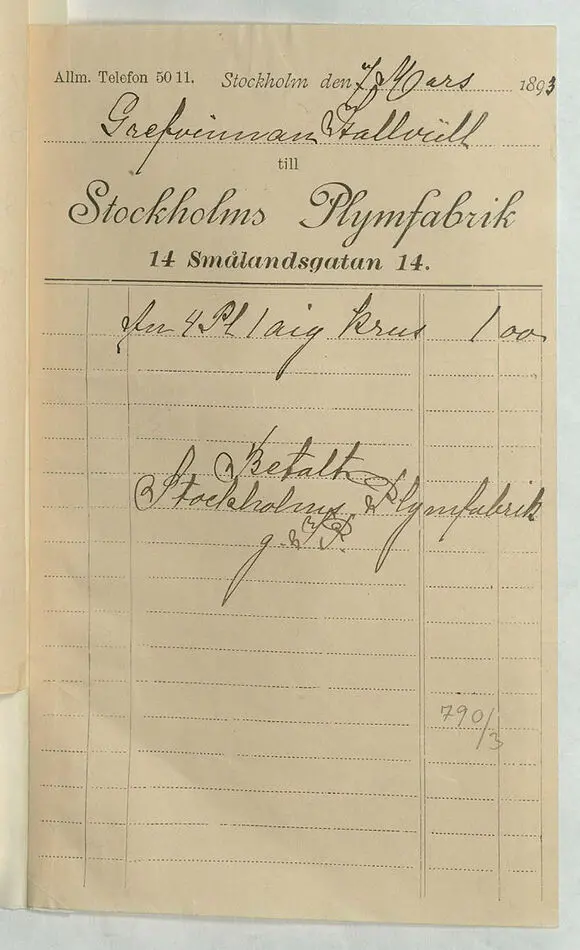 Allm. Telefon 50 11. Stockholm den 7 Mars 1893
Grefvinnan Hallvill
till
Stockholms Plymfabrik
14 Smålandsgatan 14.
4 Pl krus 1 00
Betalt
Stockholms Plymfabrik
790/3